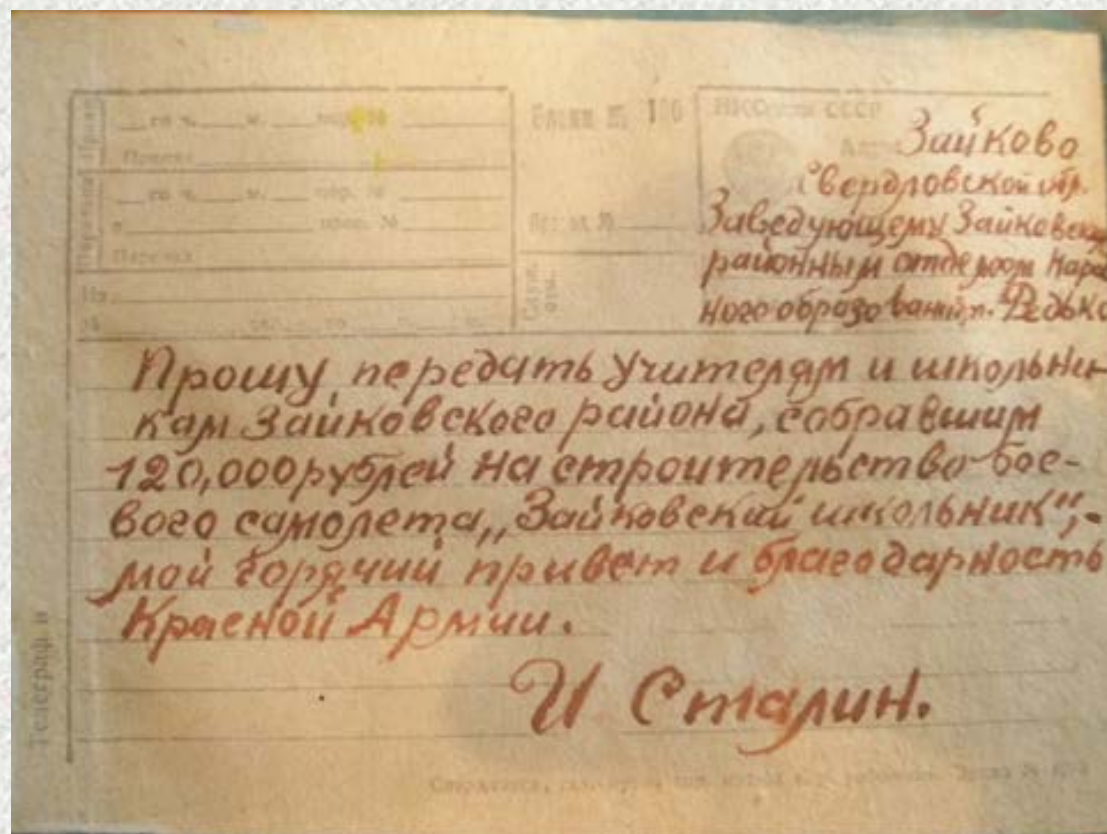 го ч. м.
Бланк № 100
НКСвязи СССР
Прием
Передача
Зайково
Свердловской
Заведующему Зайковск
районным отделом Народ
ного образования. Федько
Прошу передать Учителям и школьни-
кам Зайковского района, собравшим
120,000 рублей на строительство бое-
вого самолета „Зайковский школьник“,-
мой горячий привет и благодарность
Красной Армии.
И Сталин.
Телеграф